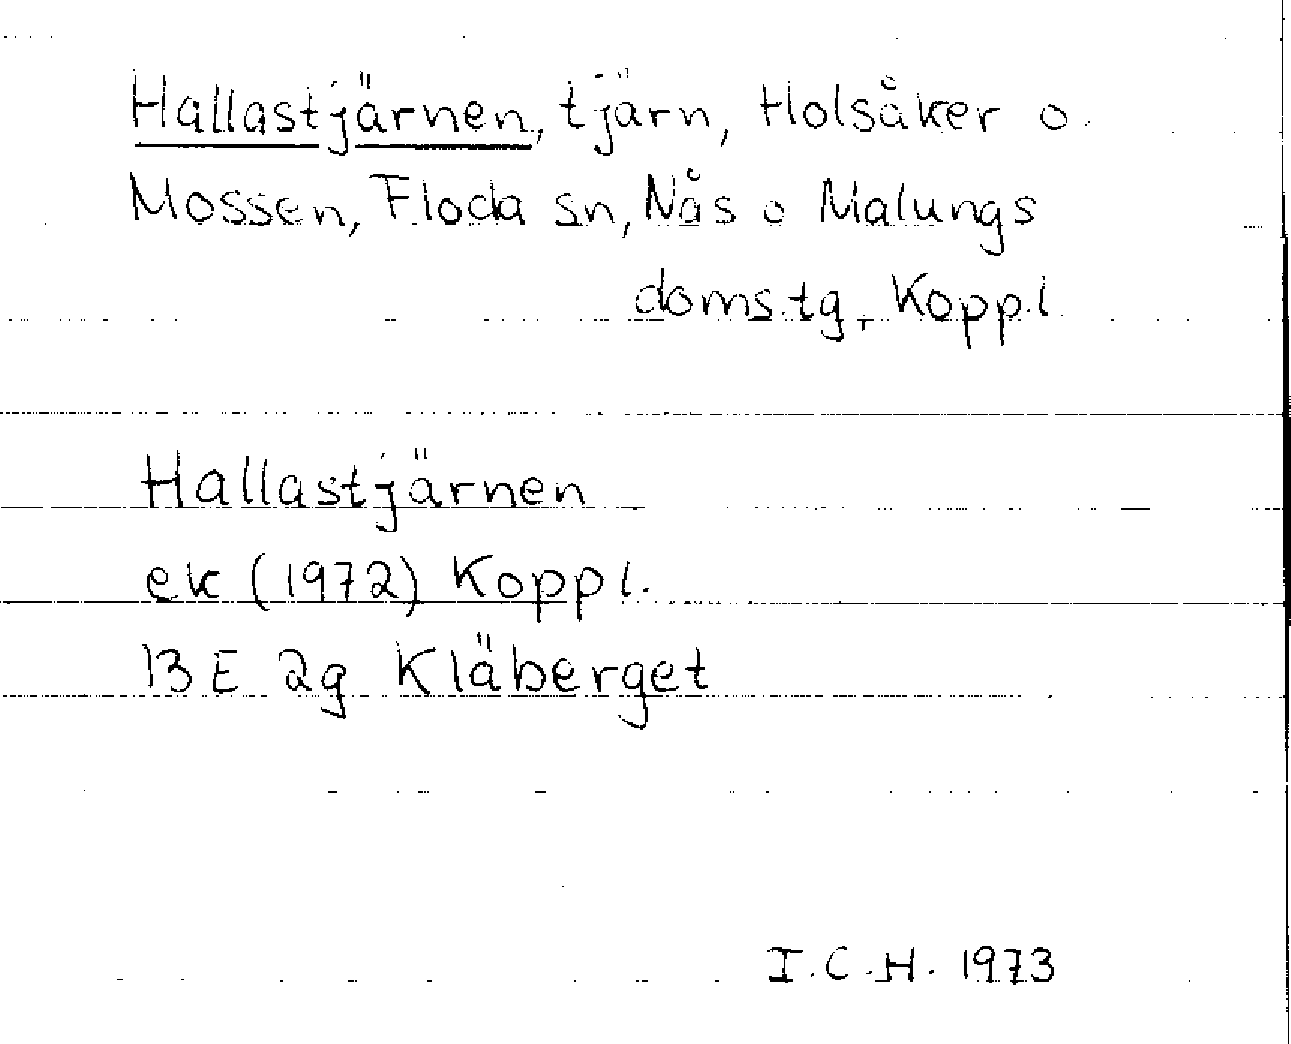 Hallastjärnen, tjärn, Holsåker o.
Mossen, Floda sn, Nås o Malungs
domstg, Koppl
Hallastjärnen
ek (1972) Koppl.
13 E 2g Kläberget
I.C.H. 1973